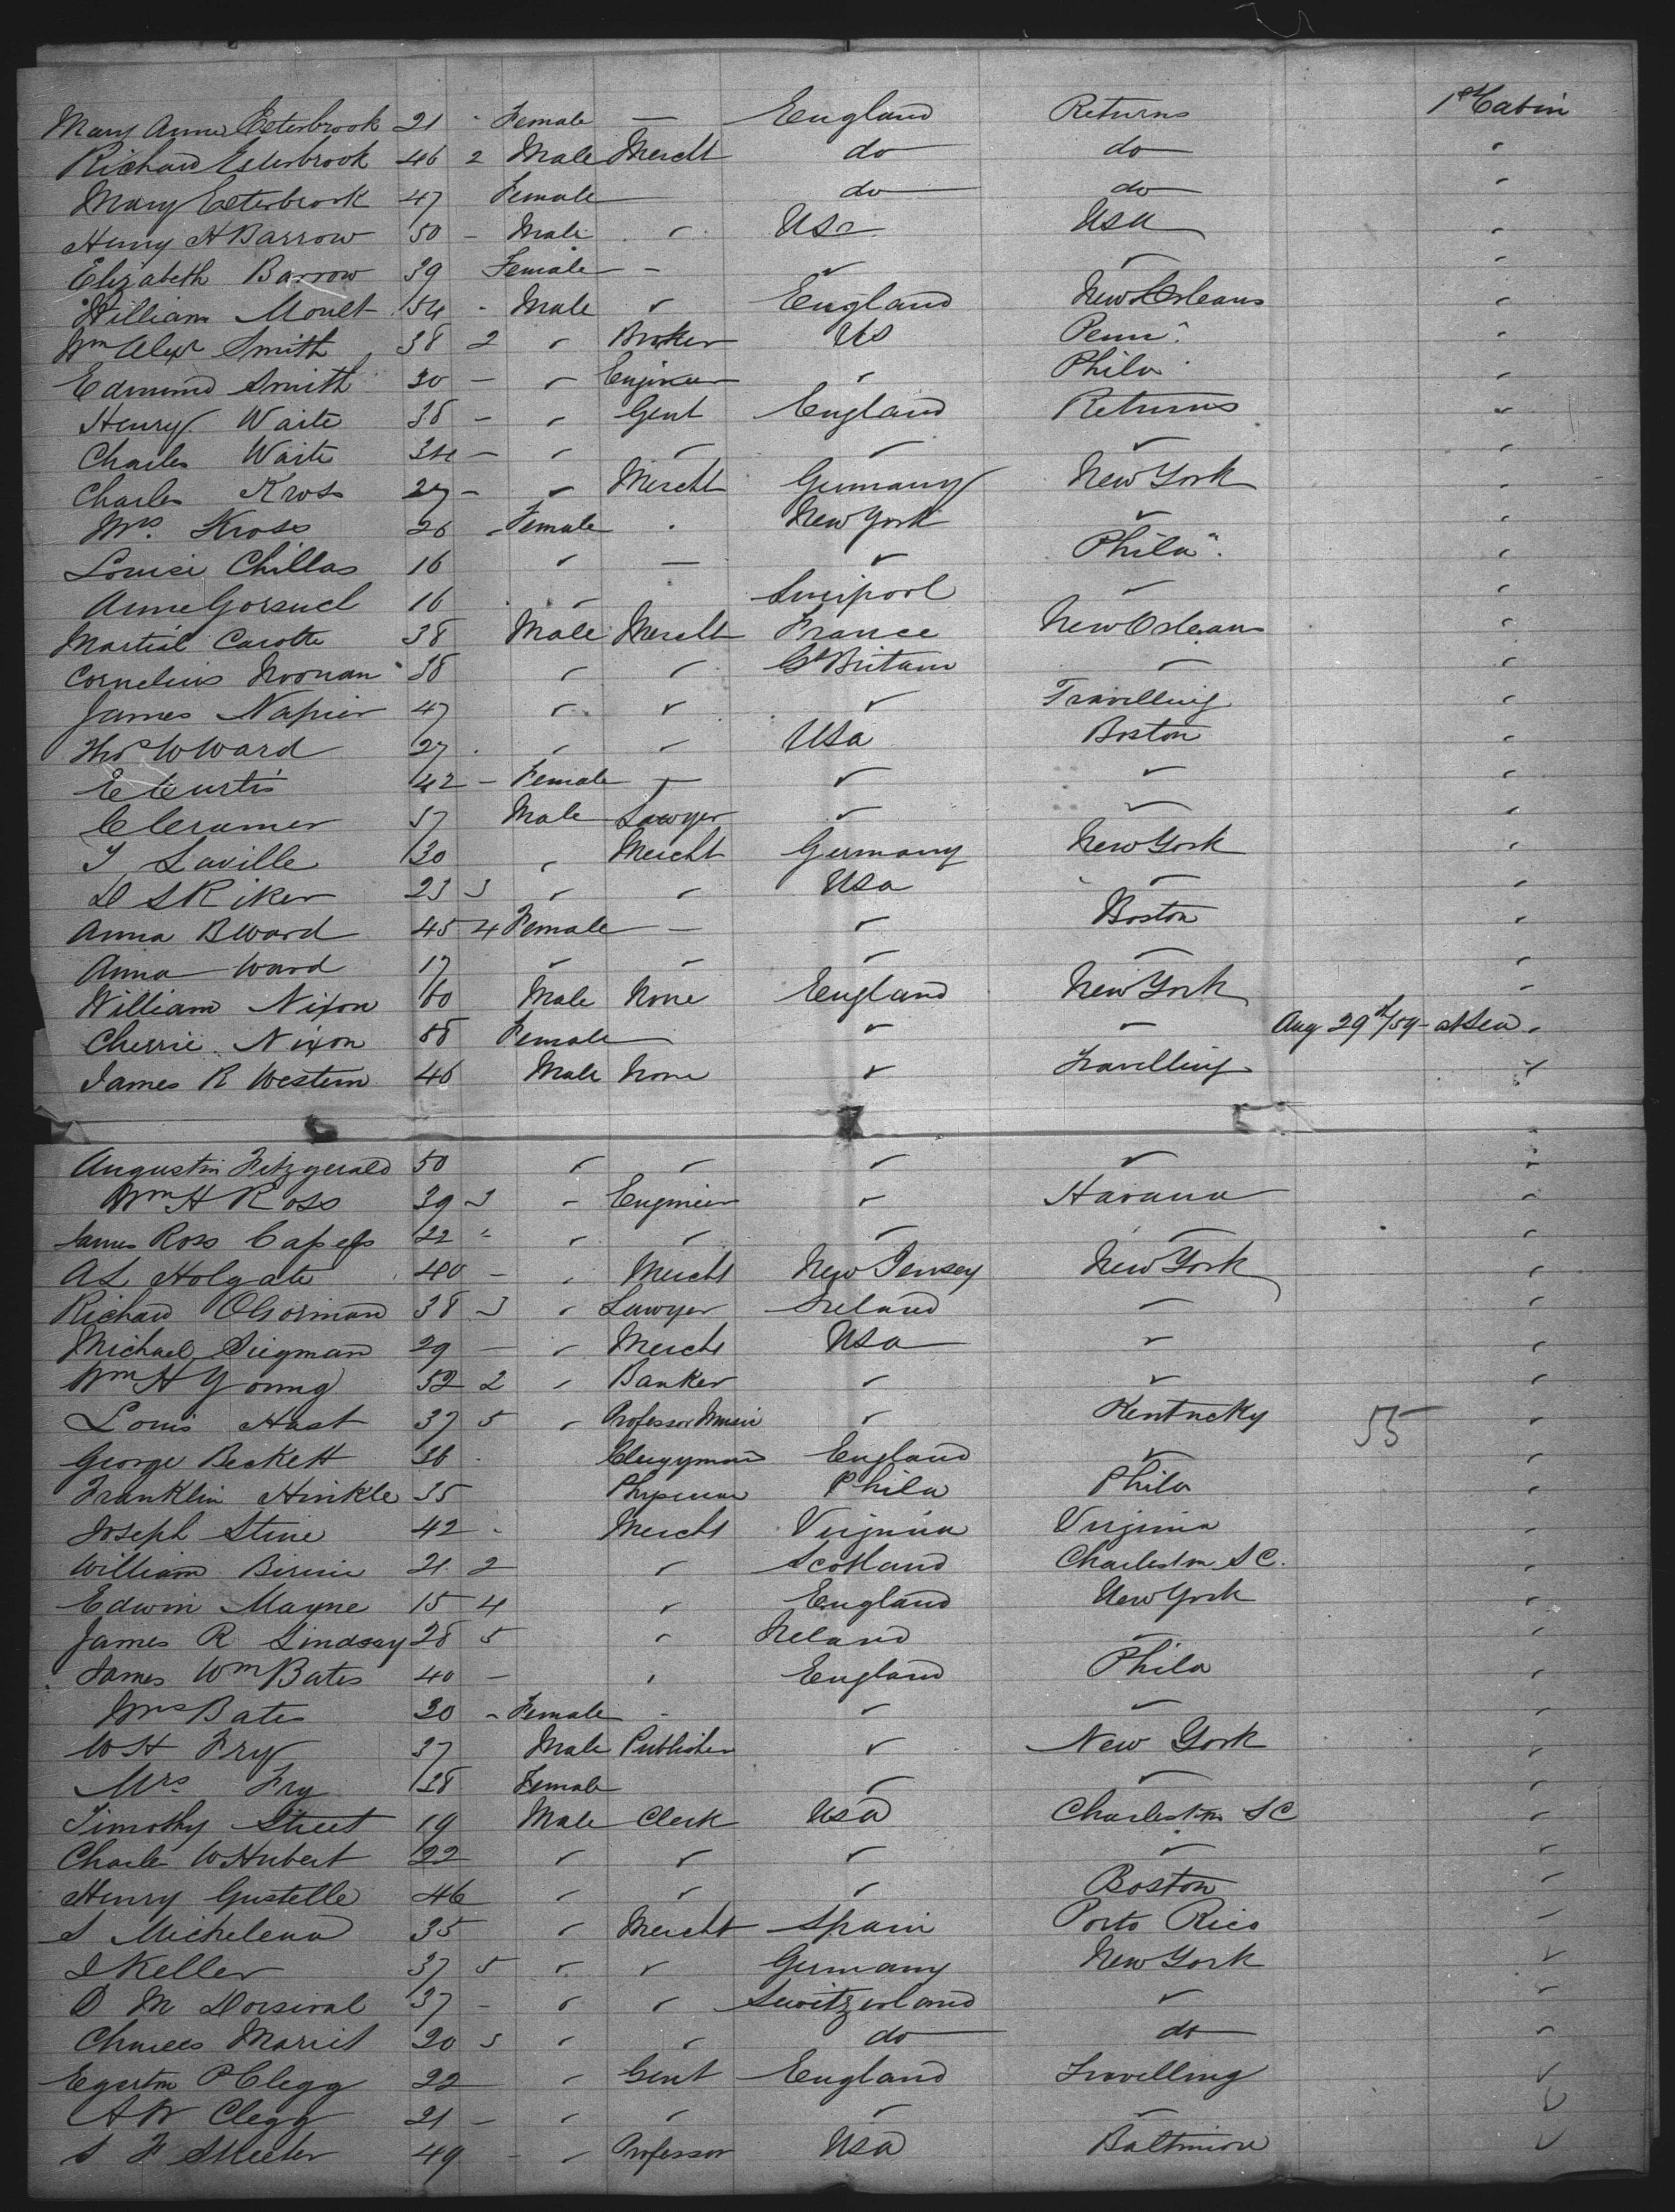 Mary Anne Esterbrook 21 - Female — England Returns 1st Cabin
Richard Esterbrook 46 2 Male Mercht do do "
Mary Esterbrook 47 Female do do "
Henry H Barrow 50 - Male " Usa Usa "
Elizabeth Barrow 39 Female - " " "
William Moult 54 - Male " England New Orleans "
Wm Alexr Smith 38 2 " Broker Us Penna "
Edmund Smith 30 - " Engineer " Phila "
Henry Waite 38 - " Gent England Returns "
Charles Waite 34 - " " " " "
Charles Kross 27 - " Mercht Germany New York "
Mrs. Kross 26 - Female . New York " "
Louise Chillas 16 " — " Phila "
Anne Gorsuch 16 " Liverpool " "
Martial Carotte 38 Male Mercht France New Orleans "
Cornelius Noonan 38 " " Gt Britain " "
James Napier 47 " " " Travelling "
Thos W Ward 27 " " Usa Boston "
E Curtis 42 - Female — " " "
C Cramer 57 Male Lawyer " " "
T Saville 30 " Mercht Germany New York "
D S Riker 23 3 " " Usa " "
Anna B Ward 45 4 Female — " Boston "
Anna Ward 17 " " " " "
William Nixon 60 Male None England New York "
Cherrie Nixon 58 Female " " Aug 29th/59 - at Sea "
James R Western 46 Male None " Travelling "
Augustin Fitzgerald 50 " " " " "
Wm H Ross 39 3 " Engineer " Havana "
James Ross 22 " " " " " "
A L Holgate 40 - " Mercht New Jersey New York "
Richard OGorman 38 3 " Lawyer Ireland " "
Michael Siegman 29 - " Mercht Usa " "
Wm H Young 52 2 " Banker " " "
Louis Hast 37 5 " Professor Music " Kentucky 55 "
George Beckett 36 Clergyman England " "
Franklin Hinkle 35 Physician Phila Phila "
Joseph Stine 42 - Mercht Virginia Virginia "
William Birnie 21 2 " Scotland Charleston S C. "
Edwin Mayne 15 4 " England New York "
James R Lindsay 28 5 " Ireland " "
James Wm Bates 40 - " England Phila "
Mrs Bates 30 - Female - " " "
W H Fry 37 Male Publisher " New York "
Mrs. Fry 38 Female " " "
Timothy Street 19 Male Clerk Usa Charleston S C "
Charles W Hubert 22 " " " " "
Henry Gustelle 46 " " " Boston "
S Michelena 35 " Mercht Spain Porto Rico "
I Keller 37 5 " " Germany New York "
D M Dorsival 37 - " " Switzerland " "
Charles Marrit 20 3 " " do do "
Egerton P Clegg 22 " Gent England Travelling "
A W Clegg 21 - " " " " "
S F Skeeler 49 - " Professor Usa Baltimore "